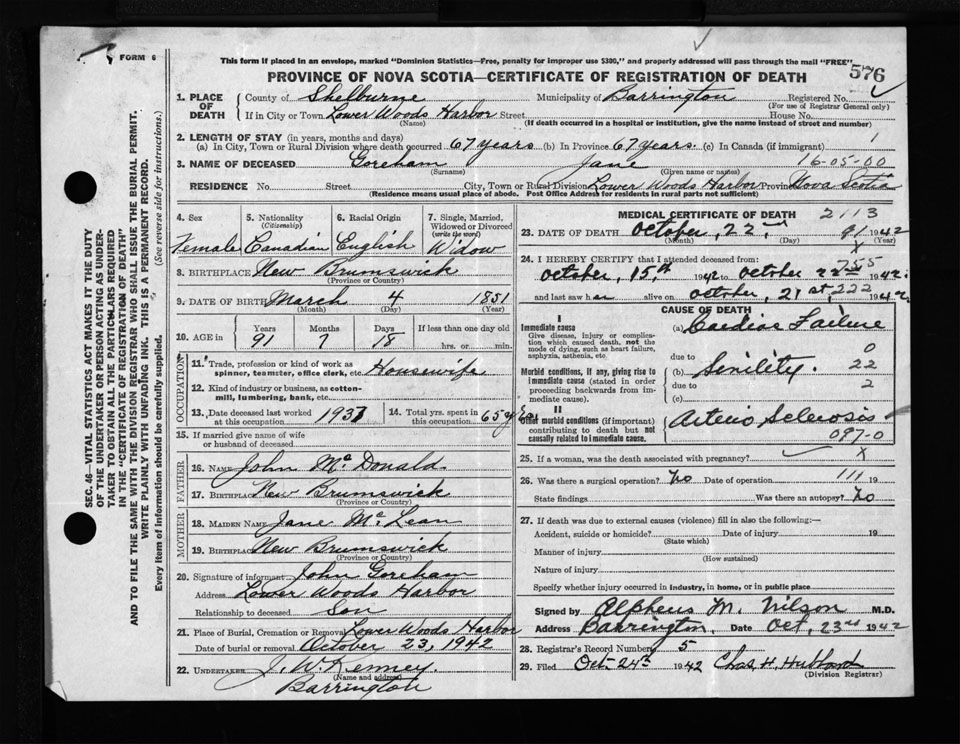 FORM 6
This form if placed in an envelope, marked "Dominion Statistics—Free, penalty for improper use $300," and properly addressed will pass through the mail "FREE"
PROVINCE OF NOVA SCOTIA—CERTIFICATE OF REGISTRATION OF DEATH
576
SEC. 46—VITAL STATISTICS ACT MAKES IT THE DUTY
OF THE UNDERTAKER OR PERSON ACTING AS UNDER-
TAKER TO OBTAIN ALL THE PARTICULARS REQUIRED
IN THE "CERTIFICATE OF REGISTRATION OF DEATH"
AND TO FILE THE SAME WITH THE DIVISION REGISTRAR WHO SHALL ISSUE THE BURIAL PERMIT.
WRITE PLAINLY WITH UNFADING INK. THIS IS A PERMANENT RECORD.
Every item of information should be carefully supplied. (See reverse side for instructions.)
1. PLACE OF DEATH County of Shelburne Municipality of Barrington Registered No.
(For use of Registrar General only)
If in City or Town Lower Woods Harbor Street House No.
(Name) (If death occurred in a hospital or institution, give the name instead of street and number)
2. LENGTH OF STAY (in years, months and days) 1
(a) In City, Town or Rural Division where death occurred 67 years (b) In Province 67 years. (c) In Canada (if immigrant)
3. NAME OF DECEASED Goreham Jane 16-05-00
(Surname) (Given name or names)
RESIDENCE No. Street City, Town or Rural Division Lower Woods Harbor Province Nova Scotia
(Residence means usual place of abode. Post Office Address for residents in rural parts not sufficient)
4. Sex 5. Nationality (Citizenship) 6. Racial Origin 7. Single, Married, Widowed or Divorced (write the word)
Female Canadian English Widow
8. BIRTHPLACE New Brumswick
(Province or Country)
9. DATE OF BIRTH March 4 1851
(Month) (Day) (Year)
10. AGE in Years Months Days If less than one day old
91 7 18 hrs. or min.
OCCUPATION
11. Trade, profession or kind of work as spinner, teamster, office clerk, etc. Housewife
12. Kind of industry or business, as cotton-mill, lumbering, bank, etc.
13. Date deceased last worked at this occupation 1937 14. Total yrs. spent in this occupation 65 yrs
15. If married give name of wife or husband of deceased
FATHER
16. NAME John McDonald.
17. BIRTHPLACE New Brumswick
(Province or Country)
MOTHER
18. MAIDEN NAME Jane McLean
19. BIRTHPLACE New Brumswick
(Province or Country)
20. Signature of informant John Goreham
Address Lower Woods Harbor
Relationship to deceased Son
21. Place of Burial, Cremation or Removal Lower Woods Harbor
Date of burial or removal October 23, 1942
22. UNDERTAKER J. W. Kenney.
(Name and address)
Barrington
MEDICAL CERTIFICATE OF DEATH 2113
23. DATE OF DEATH October, 22, nd 91 1942
(Month) (Day) (Year)
24. I HEREBY CERTIFY that I attended deceased from: X
755
October, 15th 1942 to October 22nd 1942.
and last saw her alive on October, 21st, 222 1942.
CAUSE OF DEATH
I
Immediate cause
Give disease, injury or complication which caused death, not the mode of dying, such as heart failure, asphyxia, asthenia, etc.
(a) Cardiac Failure
due to 0
Morbid conditions, if any, giving rise to immediate cause (stated in order proceeding backwards from immediate cause).
(b) Senility. 22
due to 2
(c)
II
Other morbid conditions (if important) contributing to death but not causally related to immediate cause.
Arterio Sclerosis
097-0
25. If a woman, was the death associated with pregnancy? X
26. Was there a surgical operation? No Date of operation 111
State findings Was there an autopsy? No
27. If death was due to external causes (violence) fill in also the following:—
Accident, suicide or homicide? Date of injury 19
(State which)
Manner of injury
(How sustained)
Nature of injury
Specify whether injury occurred in industry, in home, or in public place
Signed by Alpheus M. Wilson M.D.
Address Barrington, Date Oct, 23rd 1942
28. Registrar's Record Number 5
29. Filed Oct-24th 1942 Chas. H. Hubbard
(Division Registrar)